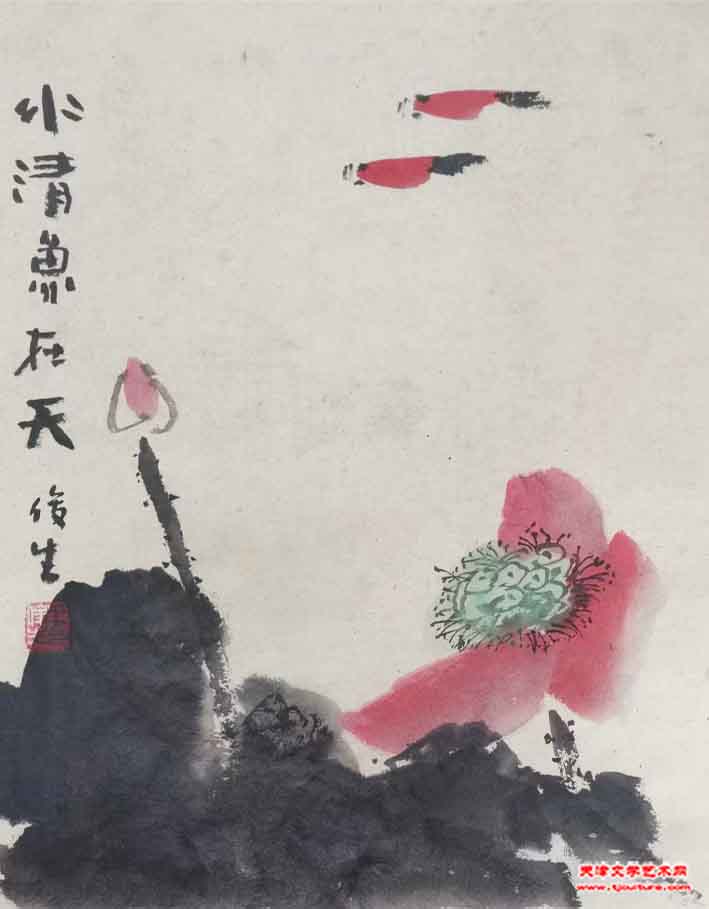 水清魚在天
俊生
天津文学艺术网
www.tjculture.com